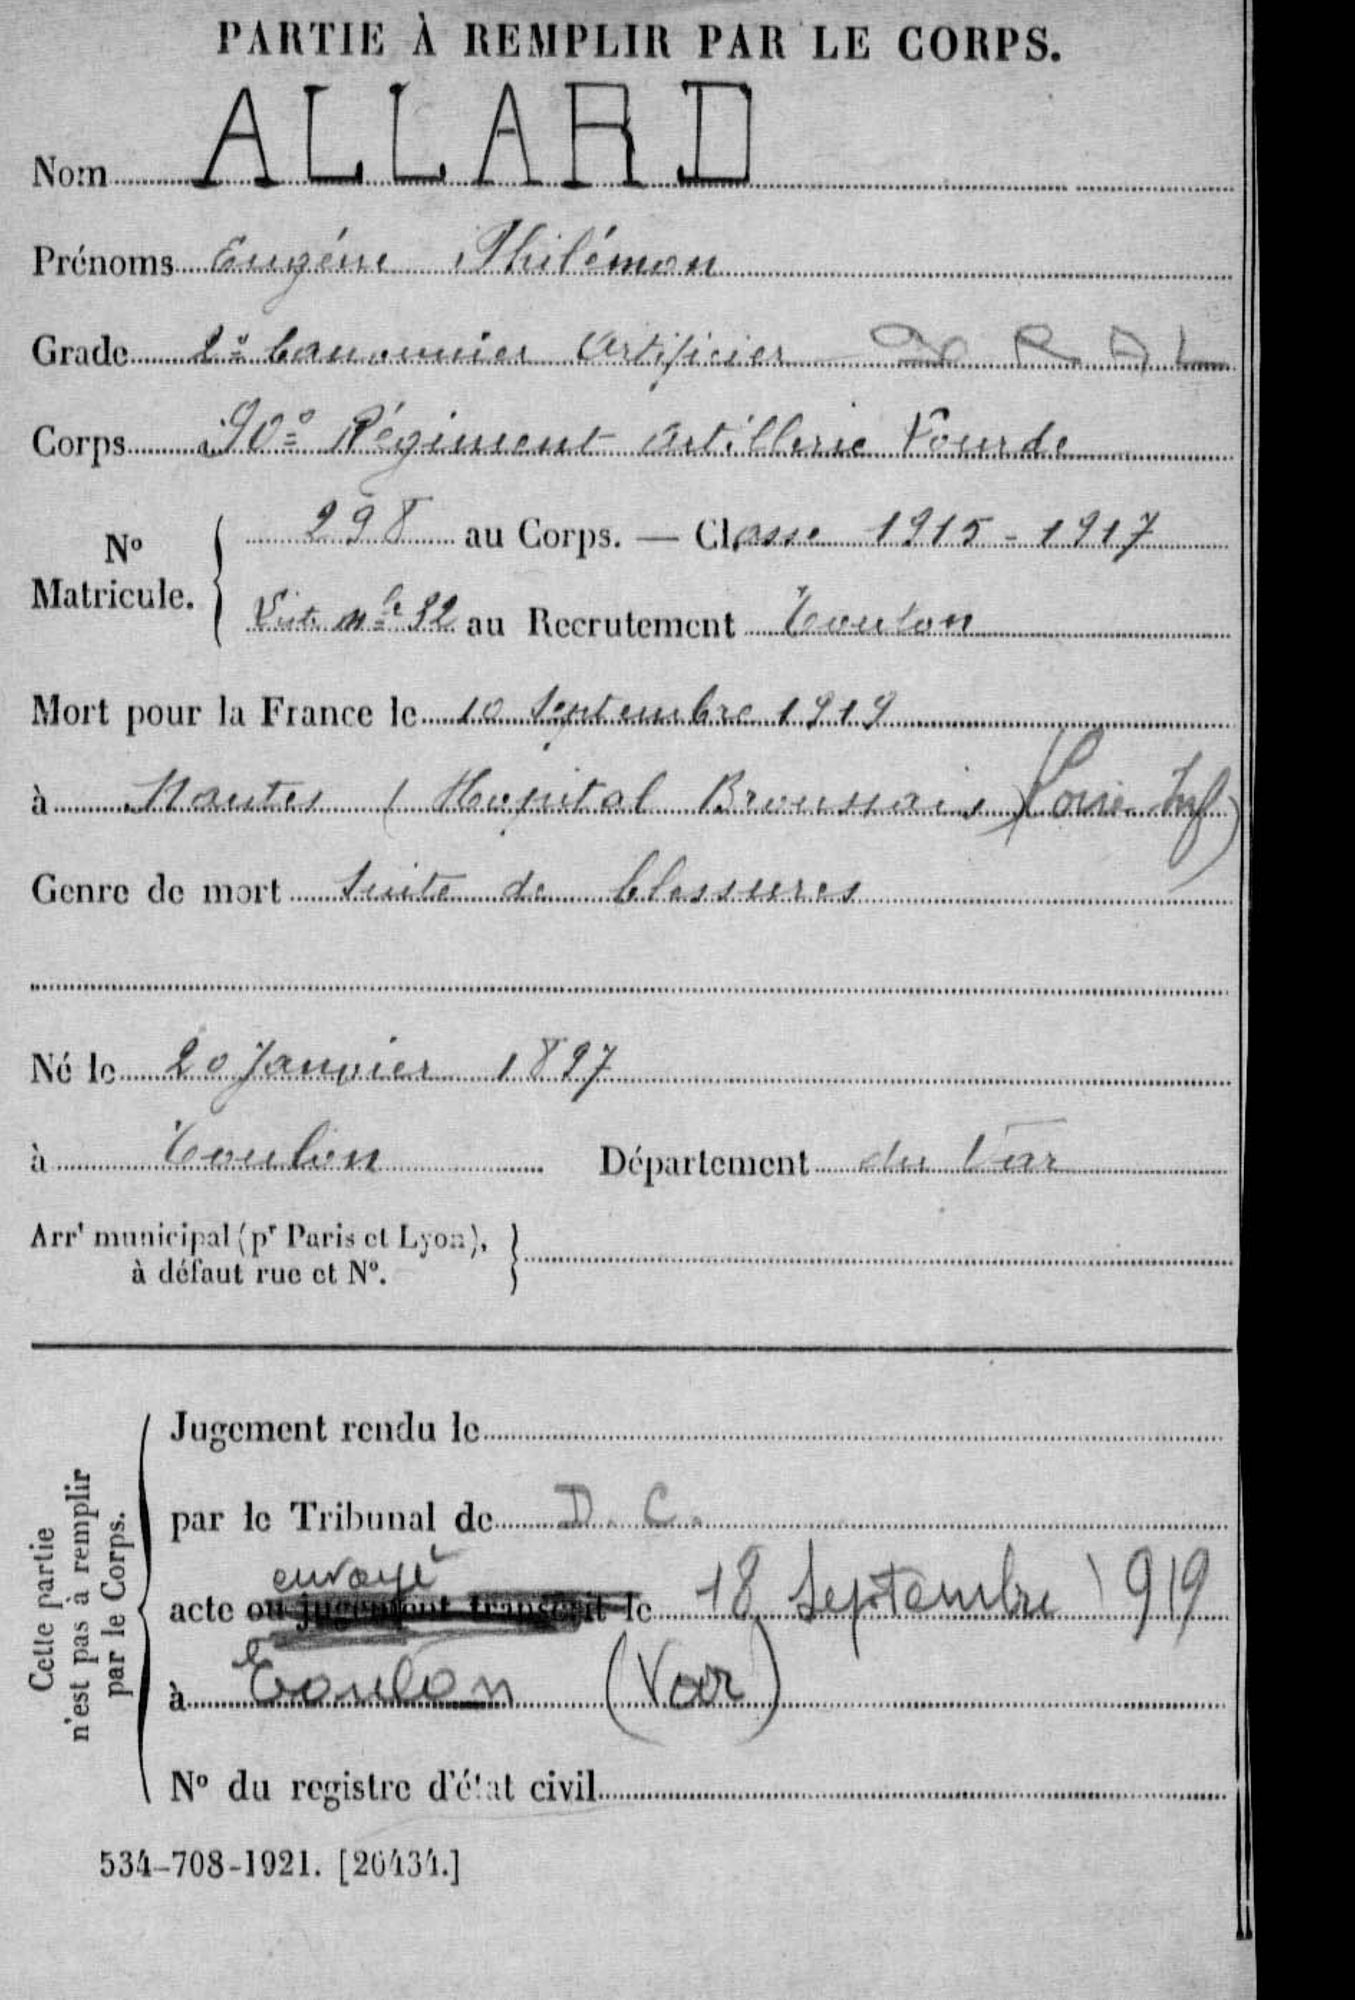 PARTIE À REMPLIR PAR LE CORPS.
Nom ALLARD
Prénoms Eugéne Philémon
Grade 2e Canonnier Artificier R A L
Corps 90e Régiment Artillerie Lourde
No Matricule. 298 au Corps. — Classe 1915 - 1917
Liste Mle 92 au Recrutement Toulon
Mort pour la France le 10 Septembre 1919
à Nantes (Hopital Broussais) (Loire Inf)
Genre de mort Suite de blessures
Né le 20 Janvier 1897
à Toulon Département du Var
Arrt municipal (pr Paris et Lyon),
à défaut rue et No.
Cette partie
n'est pas à remplir
par le Corps.
Jugement rendu le
par le Tribunal de D. C.
envoyé
acte ou jugement transcrit le 18 Septembre 1919
à Toulon (Var)
No du registre d'état civil
534-708-1921. [26434.]